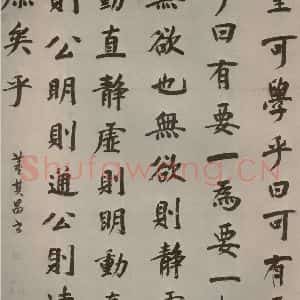 可學乎曰可有
曰有要一為要一
無欲也無欲則靜
動直靜虛則明動
則公明則通公則
矣乎
董其昌書
Shufawang.CN